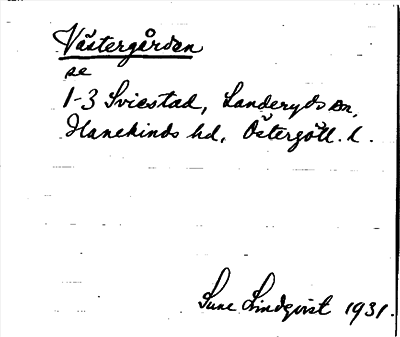 Västergården
se
1-3 Sviestad, Landeryds sn,
Hanekinds hd, Östergötl. l.
Sune Lindqvist 1931.